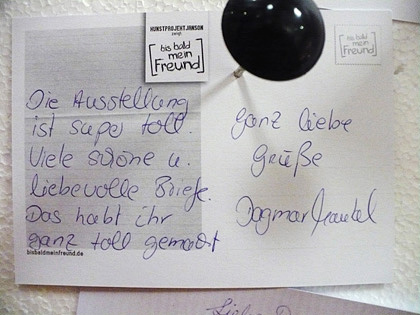 KUNSTPROJEKT JANSON
zeigt
[bis bald
mein
Freund]
bis bald
mein
Freund
Die Ausstellung
ist super toll.
Viele schöne u.
liebevolle Briefe.
Das habt ihr
ganz toll gemacht
bisbaldmeinfreund.de
Ganz liebe
Grüße
Dagmar